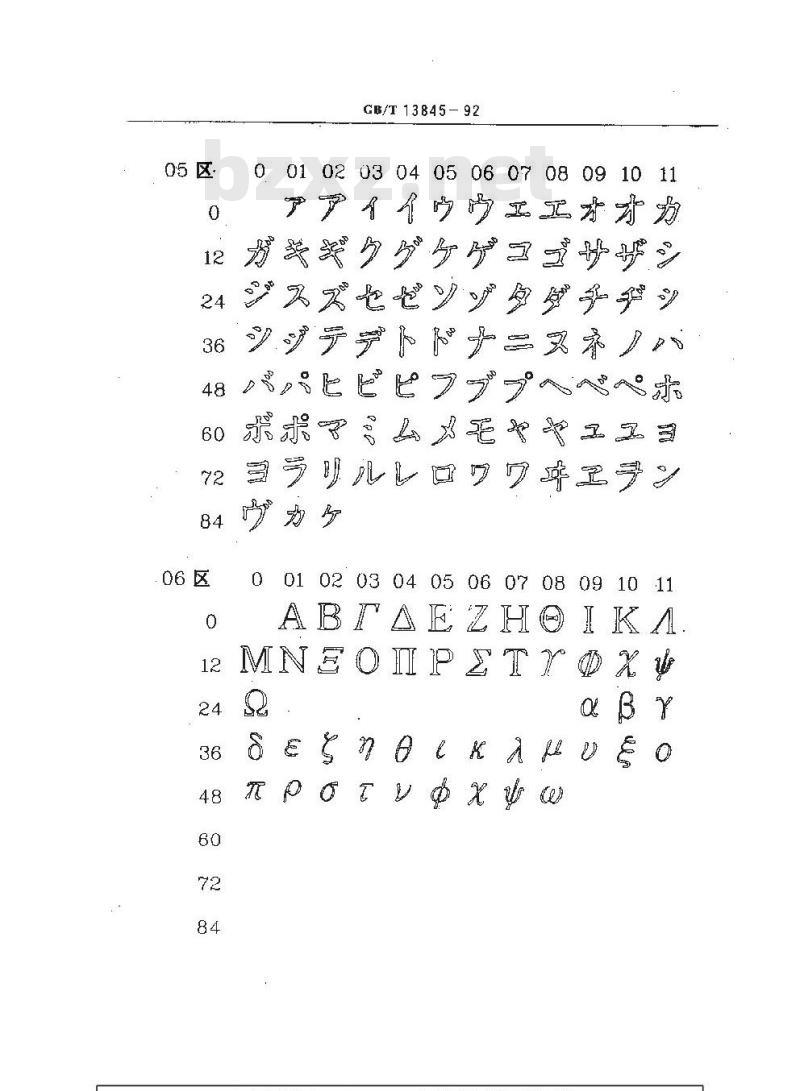 GB/T 13845-92
bzxz.net
05 区 0 01 02 03 04 05 06 07 08 09 10 11
0 ァ ア ィ イ ゥ ウ ェ エ ォ オ カ
12 ガ キ ギ ク グ ケ ゲ コ ゴ サ ザ シ
24 ジ ス ズ セ ゼ ソ ゾ タ ダ チ ヂ ッ
36 ツ ヅ テ デ ト ド ナ ニ ヌ ネ ノ ハ
48 バ パ ヒ ビ ピ フ ブ プ ヘ ベ ペ ホ
60 ボ ポ マ ミ ム メ モ ャ ヤ ュ ユ ョ
72 ヨ ラ リ ル レ ロ ヮ ワ ヰ ヱ ヲ ン
84 ヴ ヵ ヶ
06 区 0 01 02 03 04 05 06 07 08 09 10 11
0 Α Β Γ Δ Ε Ζ Η Θ Ι Κ Λ
12 Μ Ν Ξ Ο Π Ρ Σ Τ Υ Φ Χ Ψ
24 Ω α β γ
36 δ ε ζ η θ ι κ λ μ υ ξ ο
48 π ρ σ τ ν φ χ ψ ω
60
72
84